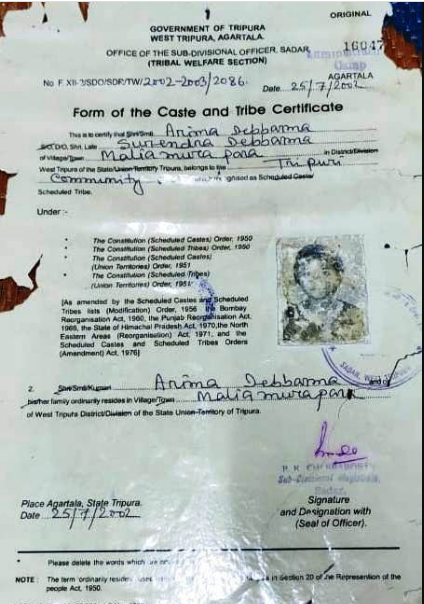 ORIGINAL
GOVERNMENT OF TRIPURA
WEST TRIPURA, AGARTALA.
OFFICE OF THE SUB-DIVISIONAL OFFICER, SADAR
16047
(TRIBAL WELFARE SECTION)
No F. XII-7/SDO/SDR/TW/2002-2003/2086.
AGARTALA
Date 25/7/2002
Form of the Caste and Tribe Certificate
This is to certify that Shri/Smti Arima Debbarma
S/O, D/O, Shri, Late Surendra Debbarma
of Village/Town Maliamura para in District/Division
West Tripura of the State/Union Territory Tripura, belongs to the Tripuri
Community which is recognised as Scheduled Caste/
Scheduled Tribe.
Under :-
* The Constitution (Scheduled Castes) Order, 1950
* The Constitution (Scheduled Tribes) Order, 1950
* The Constitution (Scheduled Castes)
(Union Territories) Order, 1951
* The Constitution (Scheduled Tribes)
(Union Territories) Order, 1951
[As amended by the Scheduled Castes and Scheduled
Tribes lists (Modification) Order, 1956 Bombay
Reorganisation Act, 1960, the Punjab Reorganisation Act,
1966, the State of Himachal Pradesh Act, 1970, the North
Eastern Areas (Reorganisation) Act, 1971, and the
Scheduled Castes and Scheduled Tribes Orders
(Amendment) Act, 1976]
SADAR, WEST TRIPURA
2. Shri/Smti/Kumari Arima Debbarma and/or
his/her family ordinarily resides in Village/Town Maliamura para
of West Tripura District/Division of the State Union-Territory of Tripura.
Sub-Divisional Magistrate,
Sadar.
Place Agartala, State Tripura.
Date 25/7/2002
Signature
and Designation with
(Seal of Officer).
* Please delete the words which
NOTE : The term 'ordinarily resides' in Section 20 of the Representation of the
people Act, 1950.